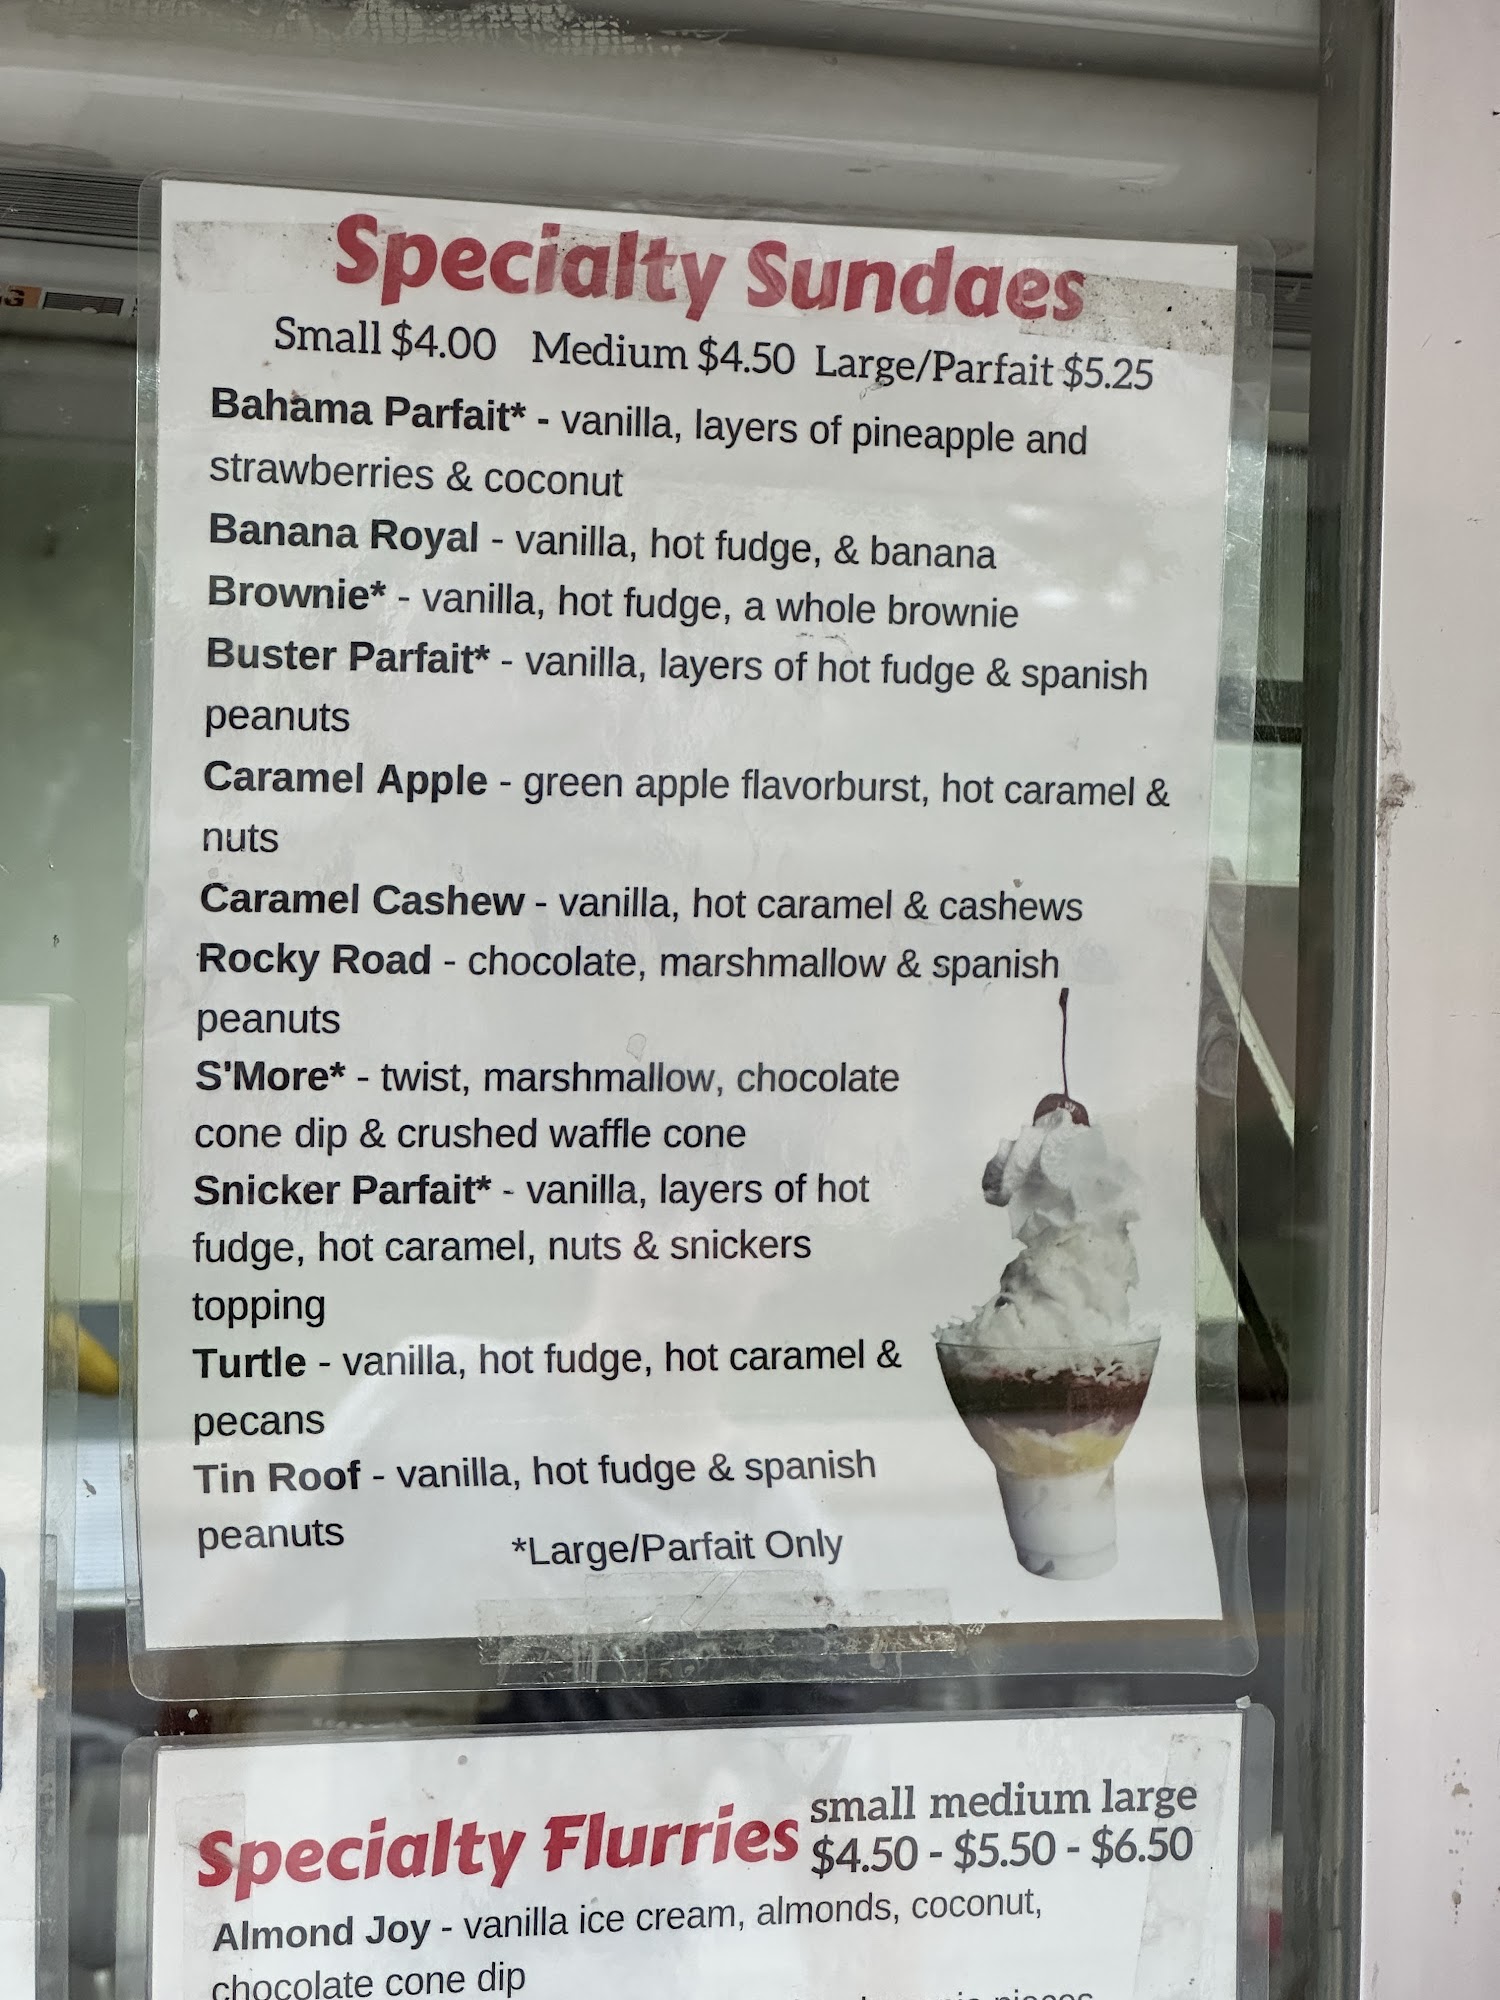 Specialty Sundaes
Small $4.00 Medium $4.50 Large/Parfait $5.25
Bahama Parfait* - vanilla, layers of pineapple and
strawberries & coconut
Banana Royal - vanilla, hot fudge, & banana
Brownie* - vanilla, hot fudge, a whole brownie
Buster Parfait* - vanilla, layers of hot fudge & spanish
peanuts
Caramel Apple - green apple flavorburst, hot caramel &
nuts
Caramel Cashew - vanilla, hot caramel & cashews
Rocky Road - chocolate, marshmallow & spanish
peanuts
S'More* - twist, marshmallow, chocolate
cone dip & crushed waffle cone
Snicker Parfait* - vanilla, layers of hot
fudge, hot caramel, nuts & snickers
topping
Turtle - vanilla, hot fudge, hot caramel &
pecans
Tin Roof - vanilla, hot fudge & spanish
peanuts
*Large/Parfait Only
Specialty Flurries
small medium large
$4.50 - $5.50 - $6.50
Almond Joy - vanilla ice cream, almonds, coconut,
chocolate cone dip